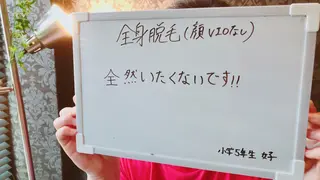 全身脱毛(顔VIOなし)
全然いたくないです!!
小学5年生 女子